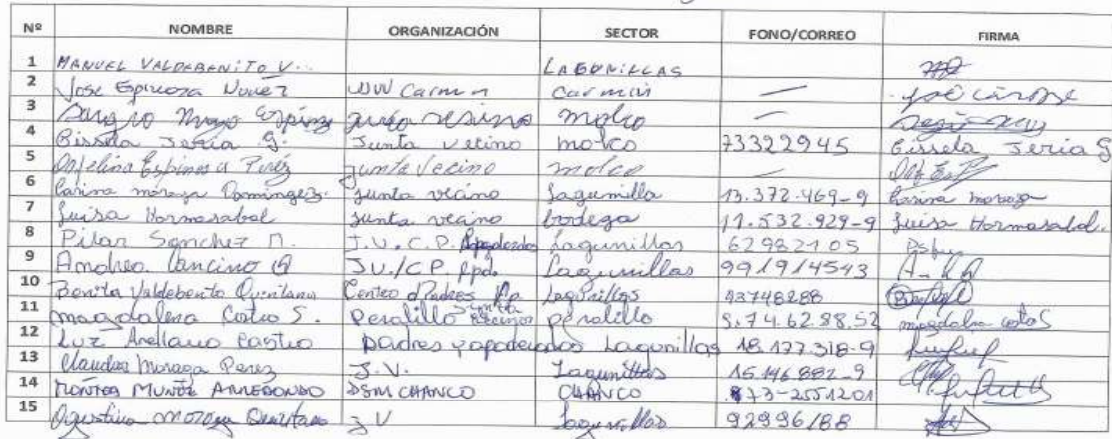 Nº NOMBRE ORGANIZACIÓN SECTOR FONO/CORREO FIRMA
1 MANUEL VALDEBENITO V. LAGUNILLAS
2 Jose Espinoza Nuñez Carmen Carmen —
3 Sergio Moya Espinoza junta vecino molco —
4 Gissela Jeria G. Junta vecino molco 73322945 Gissela Jeria G
5 Orfelina Espinosa Pérez junta vecino molco —
6 Carina moraga Dominguez. junta vecino lagunilla 13.372.469-9 Carina moraga
7 Luisa Hormazabal junta vecino bodega 11.532.929-9 Luisa Hormazabal.
8 Pilar Sanchez M. J.V.C.P. Apoderados Lagunillas 62982105
9 Andrea Cancino J.V./C.P. Apd. Lagunillas 991914543
10 Benita Valdebenito Quintana Centro d Padres Ap Lagunillas 93748288
11 magdalena Castro S. Peralillo junta vecinos peralillo 5.74.62.88.52
12 Luz Arellano Castro padres y apoderados Lagunillas 18.177.318-9
13 Claudia Moraga Perez J.V. Lagunillas 15.146.882-9
14 MUÑOZ ARREDONDO DSM CHANCO CHANCO 73-2551201
15 Agustina Moraga Quintana J V Lagunillas 92996188